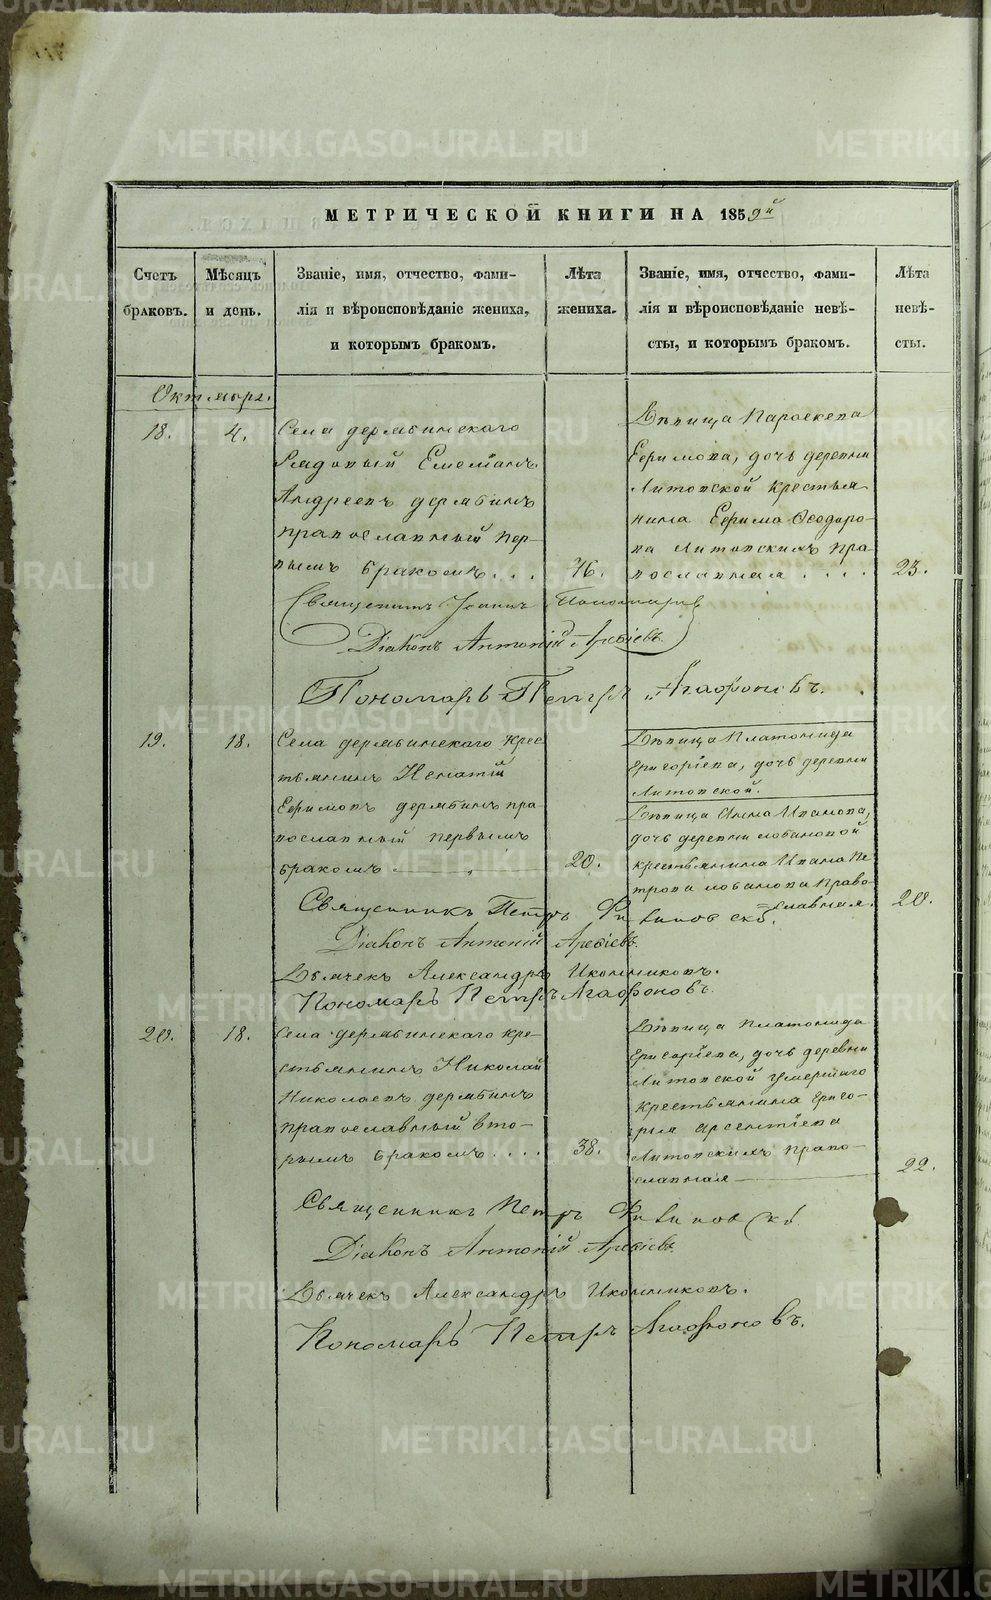 МЕТРИЧЕСКОЙ КНИГИ НА 1859й
Счетъ
браковъ.
Мѣсяцъ
и день.
Званіе, имя, отчество, фами-
лія и вѣроисповѣданіе жениха,
и которымъ бракомъ.
Лѣта
жениха.
Званіе, имя, отчество, фами-
лія и вѣроисповѣданіе невѣ-
сты, и которымъ бракомъ.
Лѣта
невѣ-
сты.
Октября.
18.
4.
Села дермбинскаго
Рядовый Емелианъ
Андреевъ дермбинъ
православный пер-
вымъ бракомъ....
Дѣвица Параскева
Ефимова, дочь деревни
Литовской крестья
нина Ефима Ѳеодоро-
ва Литовскихъ пра
вославная....
23.
Священникъ Іоаннъ Пономаревъ
Діаконъ Антоній Арефіевъ
Пономарь Петръ Агафоновъ.
19.
18.
Села дермбинскаго крес
тьянинъ Игнатій
Ефимовъ дермбинъ пра
вославный первымъ
бракомъ
20.
Дѣвица Платонида
Григоріева, дочь деревни
Литовской.
Дѣвица Анна Иванова,
дочь деревни лобановой
крестьянина Ивана Пе
трова лобанова Право-
славная.
20.
Священникъ Петръ
Діаконъ Антоній Арефіевъ
Дьячекъ Александръ Иконниковъ.
Пономарь Петръ Агафоновъ
20.
18.
Села дермбинскаго кре-
стьянинъ Николай
Николаевъ дермбинъ
православный вто-
рымъ бракомъ....
38.
Дѣвица Платонида
Григоріева, дочь деревни
Литовской умершаго
крестьянина Григо-
рія Арсентіева
Литовскихъ право-
славная
22.
Священникъ Петръ
Діаконъ Антоній Арефіевъ
Дьячекъ Александръ Иконниковъ.
Пономарь Петръ Агафоновъ.
METRIKI.GASO-URAL.RU